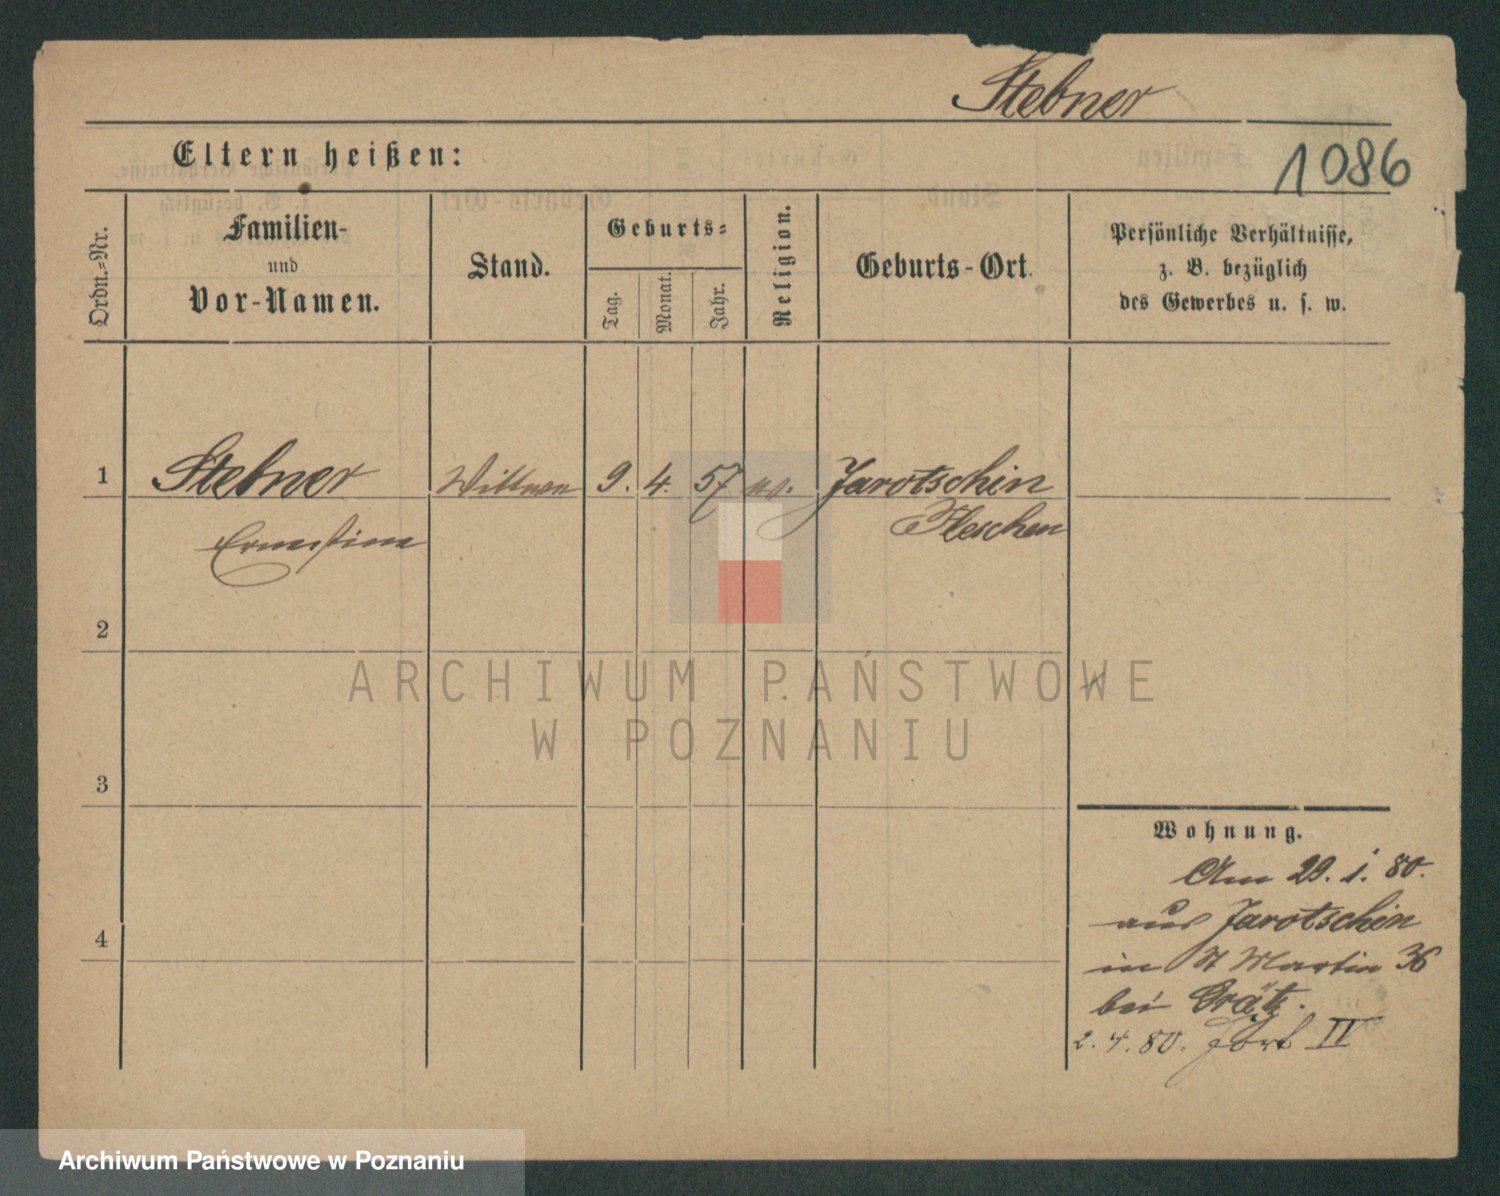 Stebner
Eltern heißen:
1086
Ordn.-Nr.
Familien-
und
Vor-Namen.
Stand.
Geburts-
Tag.
Monat.
Jahr.
Religion.
Geburts-Ort.
Persönliche Verhältnisse,
z. B. bezüglich
des Gewerbes u. s. w.
1 Stebner Wittwe 9. 4. 57 ev. Jarotschin
Ernestine Pleschen
2
3
4
Wohnung.
Am 29. 1. 80.
aus Jarotschin
in St Martin 36
bei Grätz.
2. 4. 80. Fort IV
ARCHIWUM PAŃSTWOWE
W POZNANIU
Archiwum Państwowe w Poznaniu